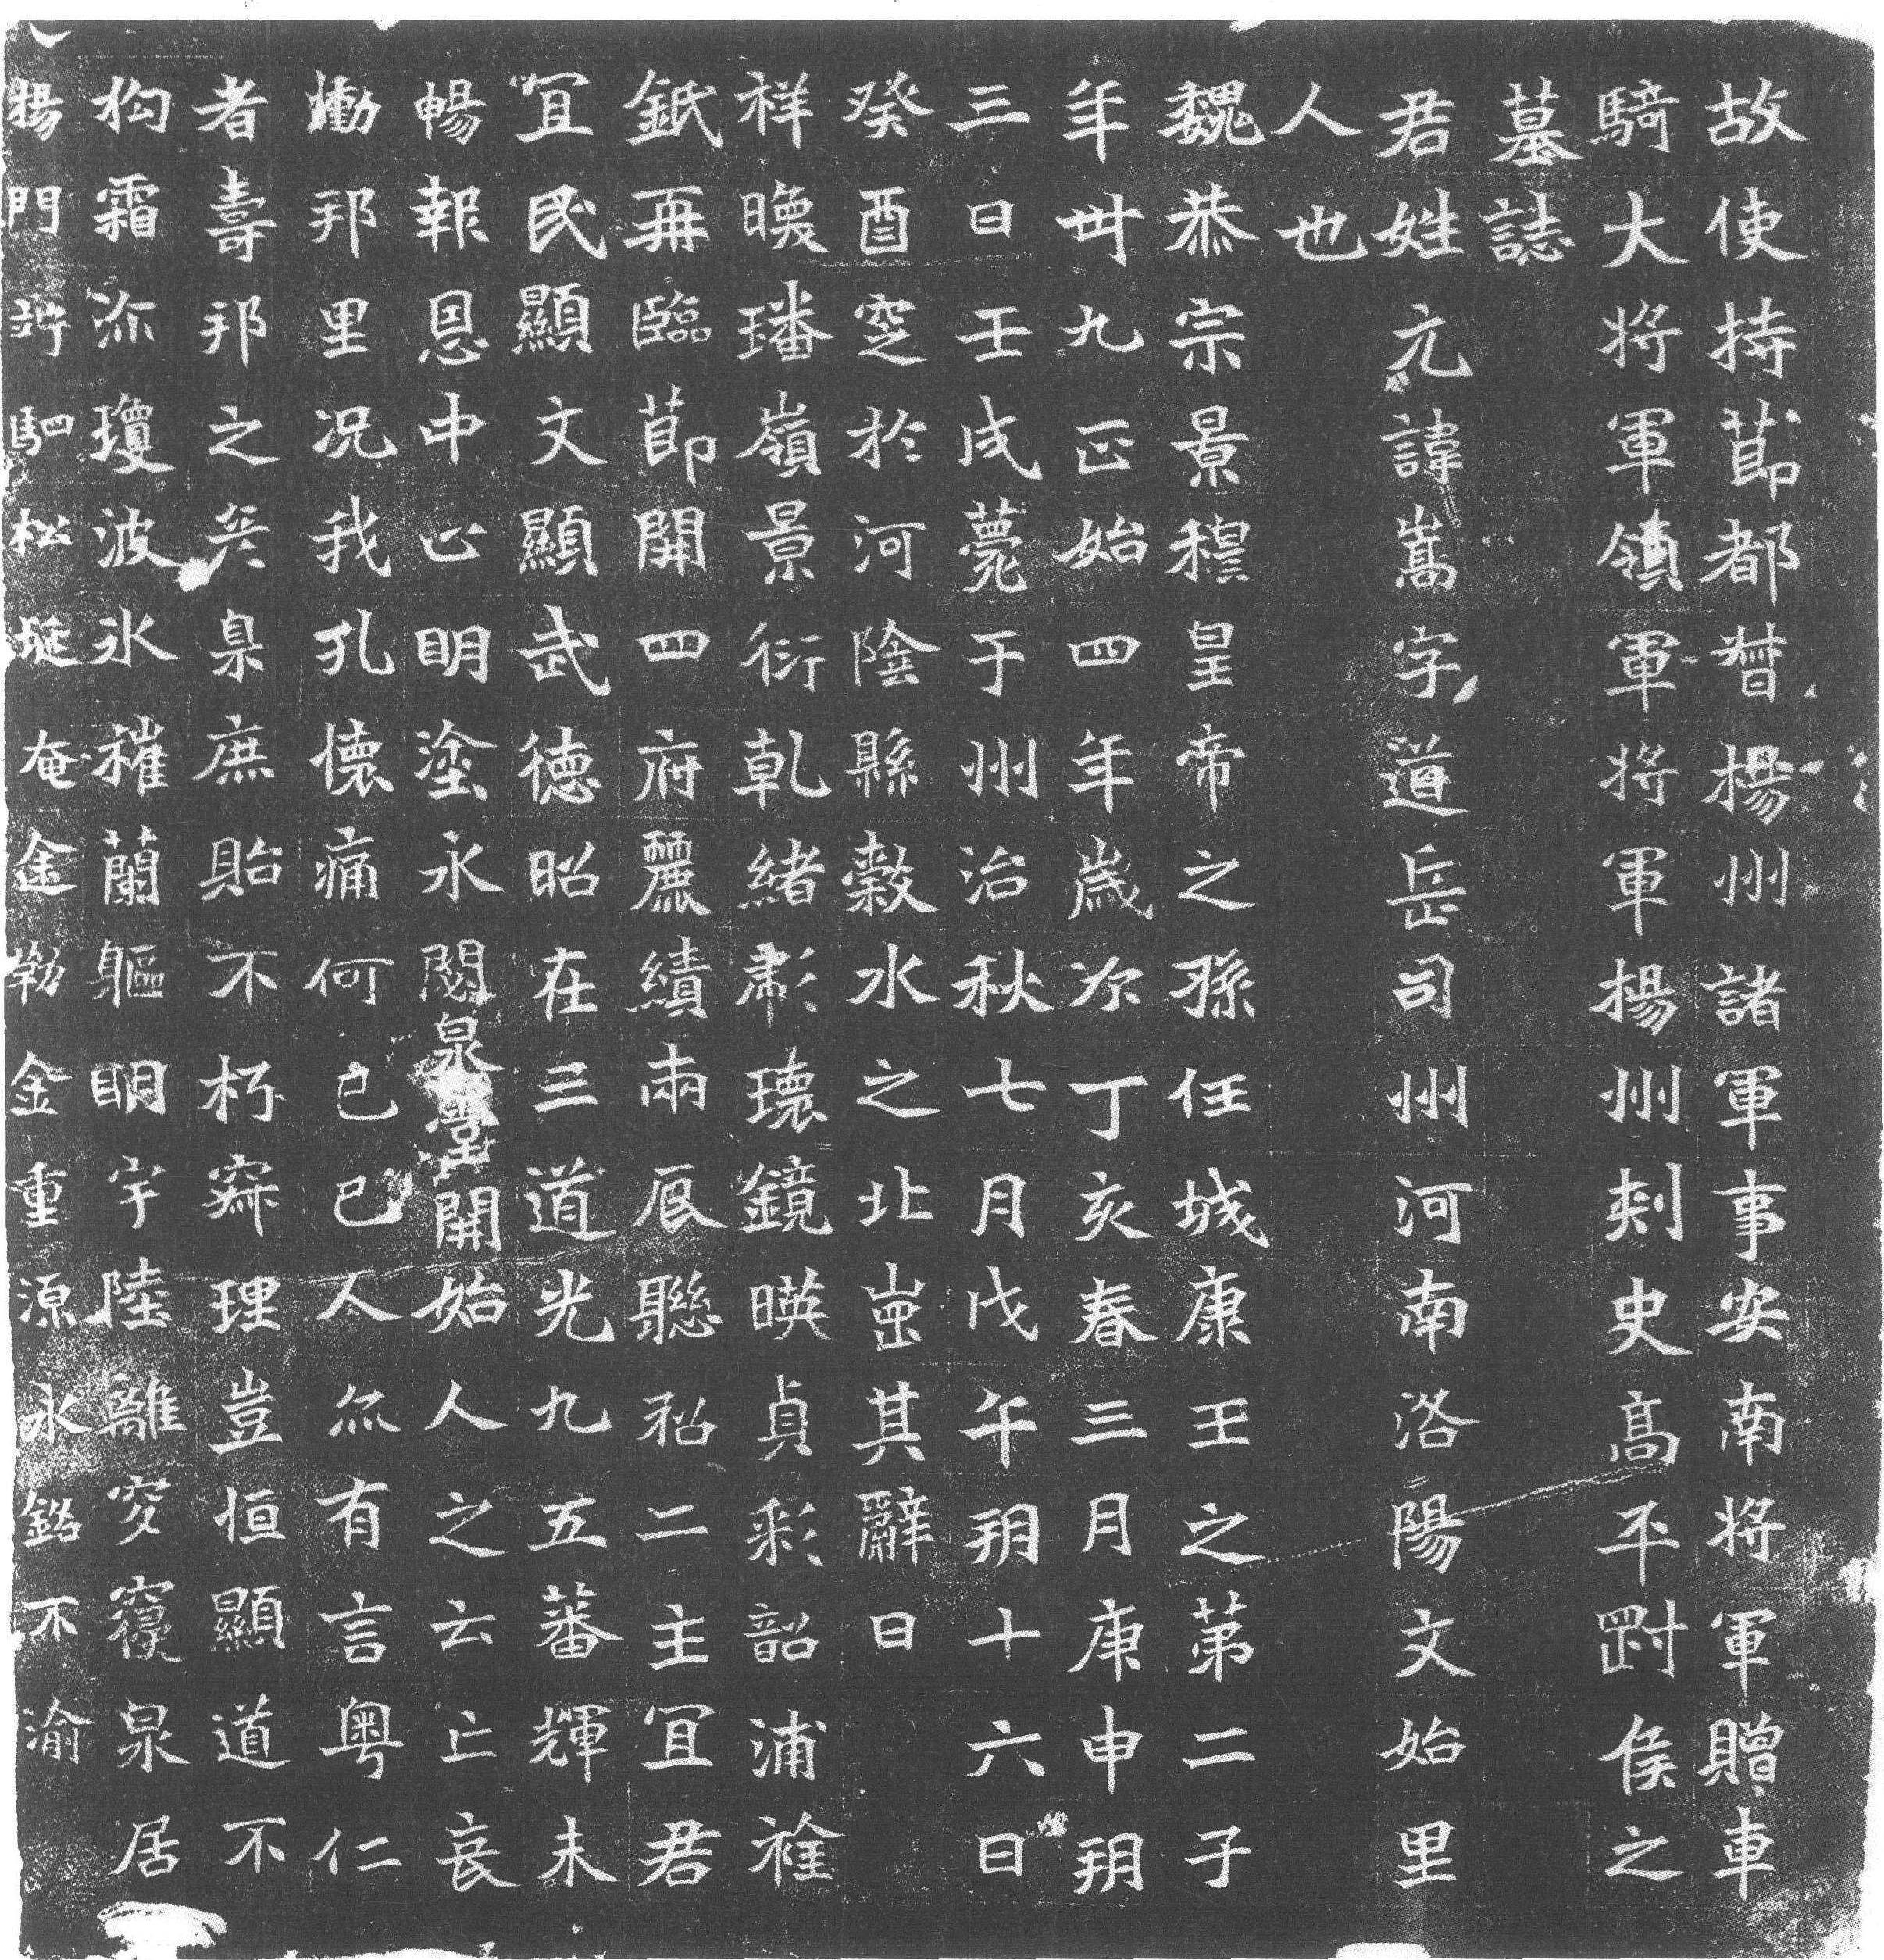 故使持節都督揚州諸軍事安南將軍贈車
騎大將軍領軍將軍揚州刺史高平剛侯之
墓誌
君姓元諱嵩字道岳司州河南洛陽文始里
人也
魏恭宗景穆皇帝之孫任城康王之第二子
年卅九正始四年歲次丁亥春三月庚申朔
三日壬戌薨于州治秋七月戊午朔十六日
癸酉窆於河陰縣穀水之北崗其辭曰
祥曒璠嶺景衍乾緒彪瓌鏡暎貞彩韶浦褵
鈱再臨節開四府麗績兩辰聯昭二主宜君
宜民顯文顯武德昭在三道光九五蕃輝未
暢報恩中止明塗永閟泉堂開始人之云亡哀
慟邦里況我孔懷痛何已已人亦有言粵仁
者壽邦之兵臬庶貽不朽竂理豈恒顯道不
拘霜沵瓊波氷摧蘭軀明宇陸離穾窾泉居
楊門竚駟松埏奄途勒金重源永銘不渝